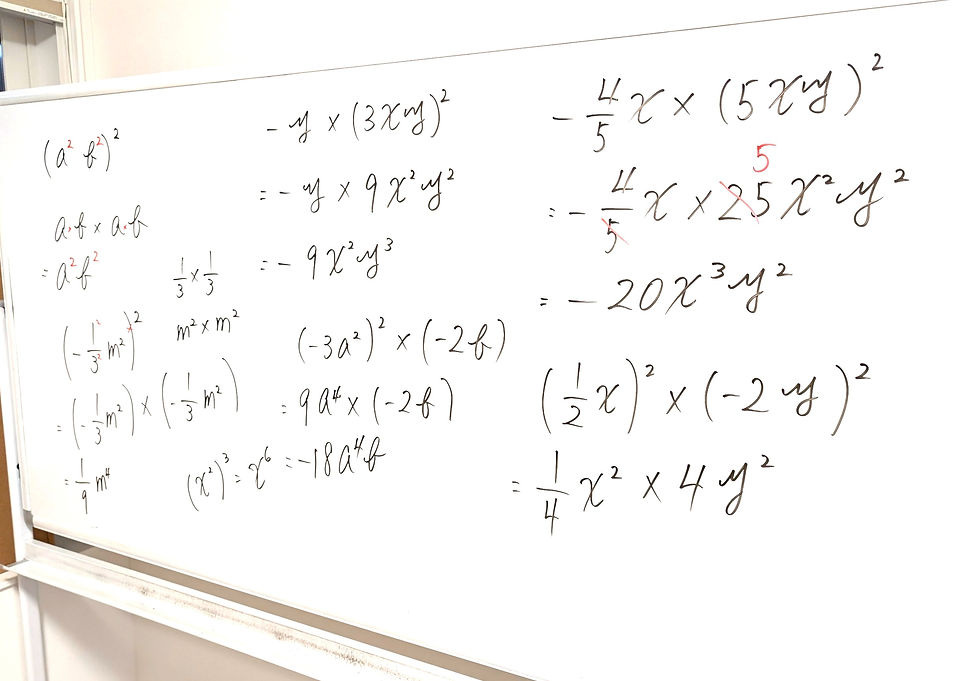 (a² b²)²
a·b × a·b
= a²b²
1/3 × 1/3
m² × m²
(-1²/3² m²)²
= (-1/3 m²) × (-1/3 m²)
= 1/9 m⁴
(x²)³ = x⁶
- y × (3xy)²
= - y × 9x²y²
= - 9x²y³
(-3a²)² × (-2b)
= 9a⁴ × (-2b)
= -18a⁴b
- 4/5 x × (5xy)²
5
= - 4/5 x × 25x²y²
= - 20x³y²
(1/2 x)² × (-2y)²
= 1/4 x² × 4y²